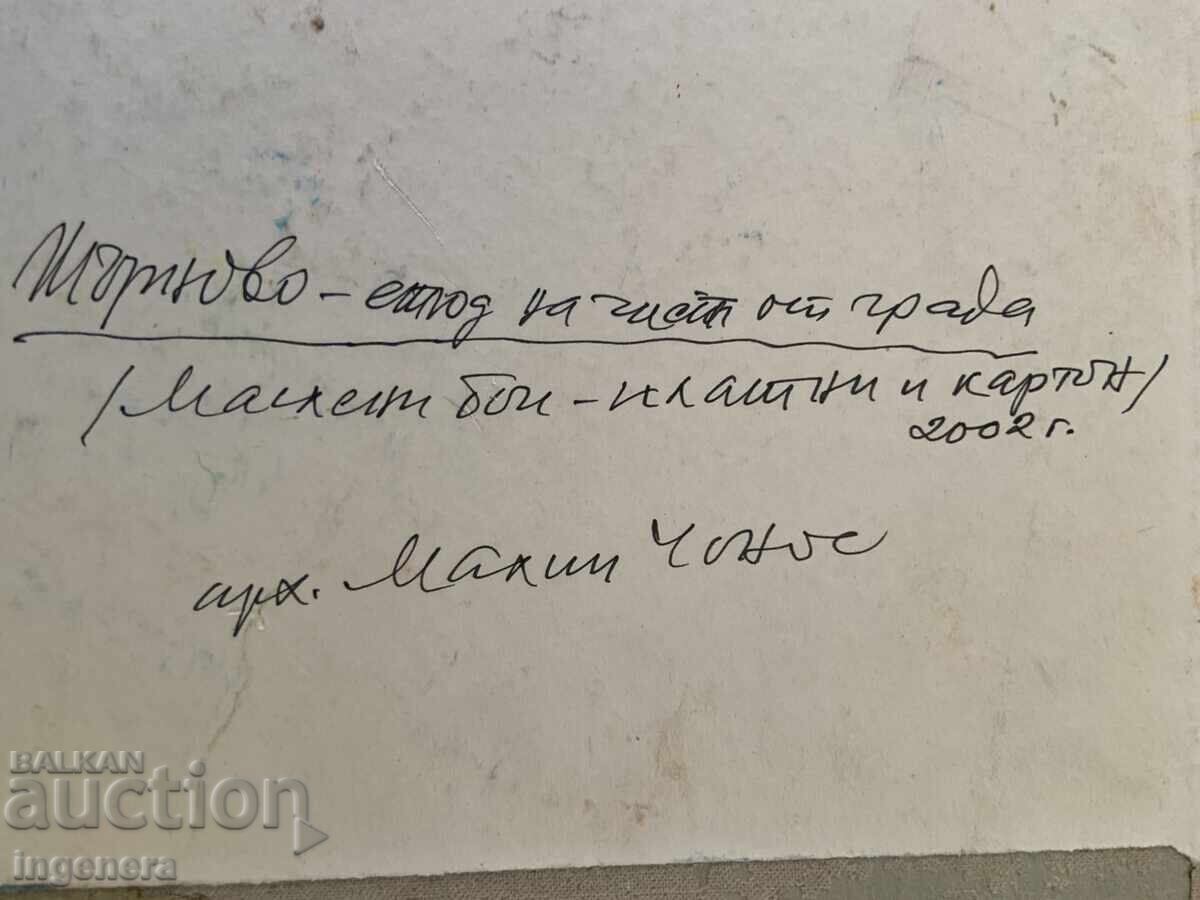 Търново – етюд на част от града
/Маслени бои – платни и картон/
2002 г.
арх. Малин Чонов
BALKAN
auction
ingenera